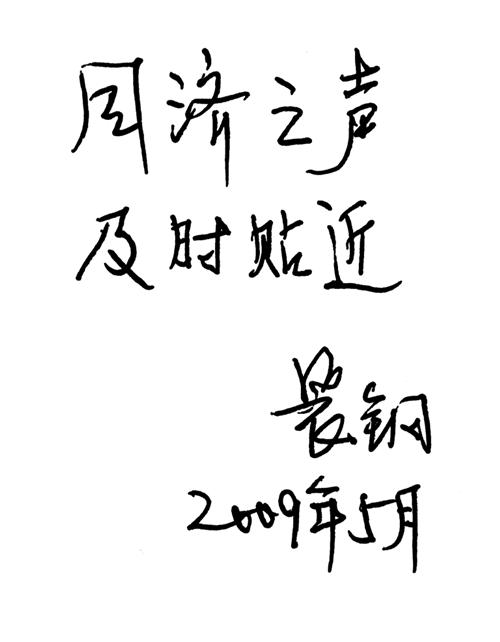 同济之声
及时贴近
裴钢
2009年5月